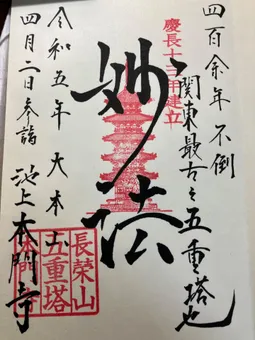 四百余年不倒
関東最古之五重塔也
慶長十三年建立
妙法
長榮山
五重塔
大本山
池上本門寺
令和五年
四月二日参詣